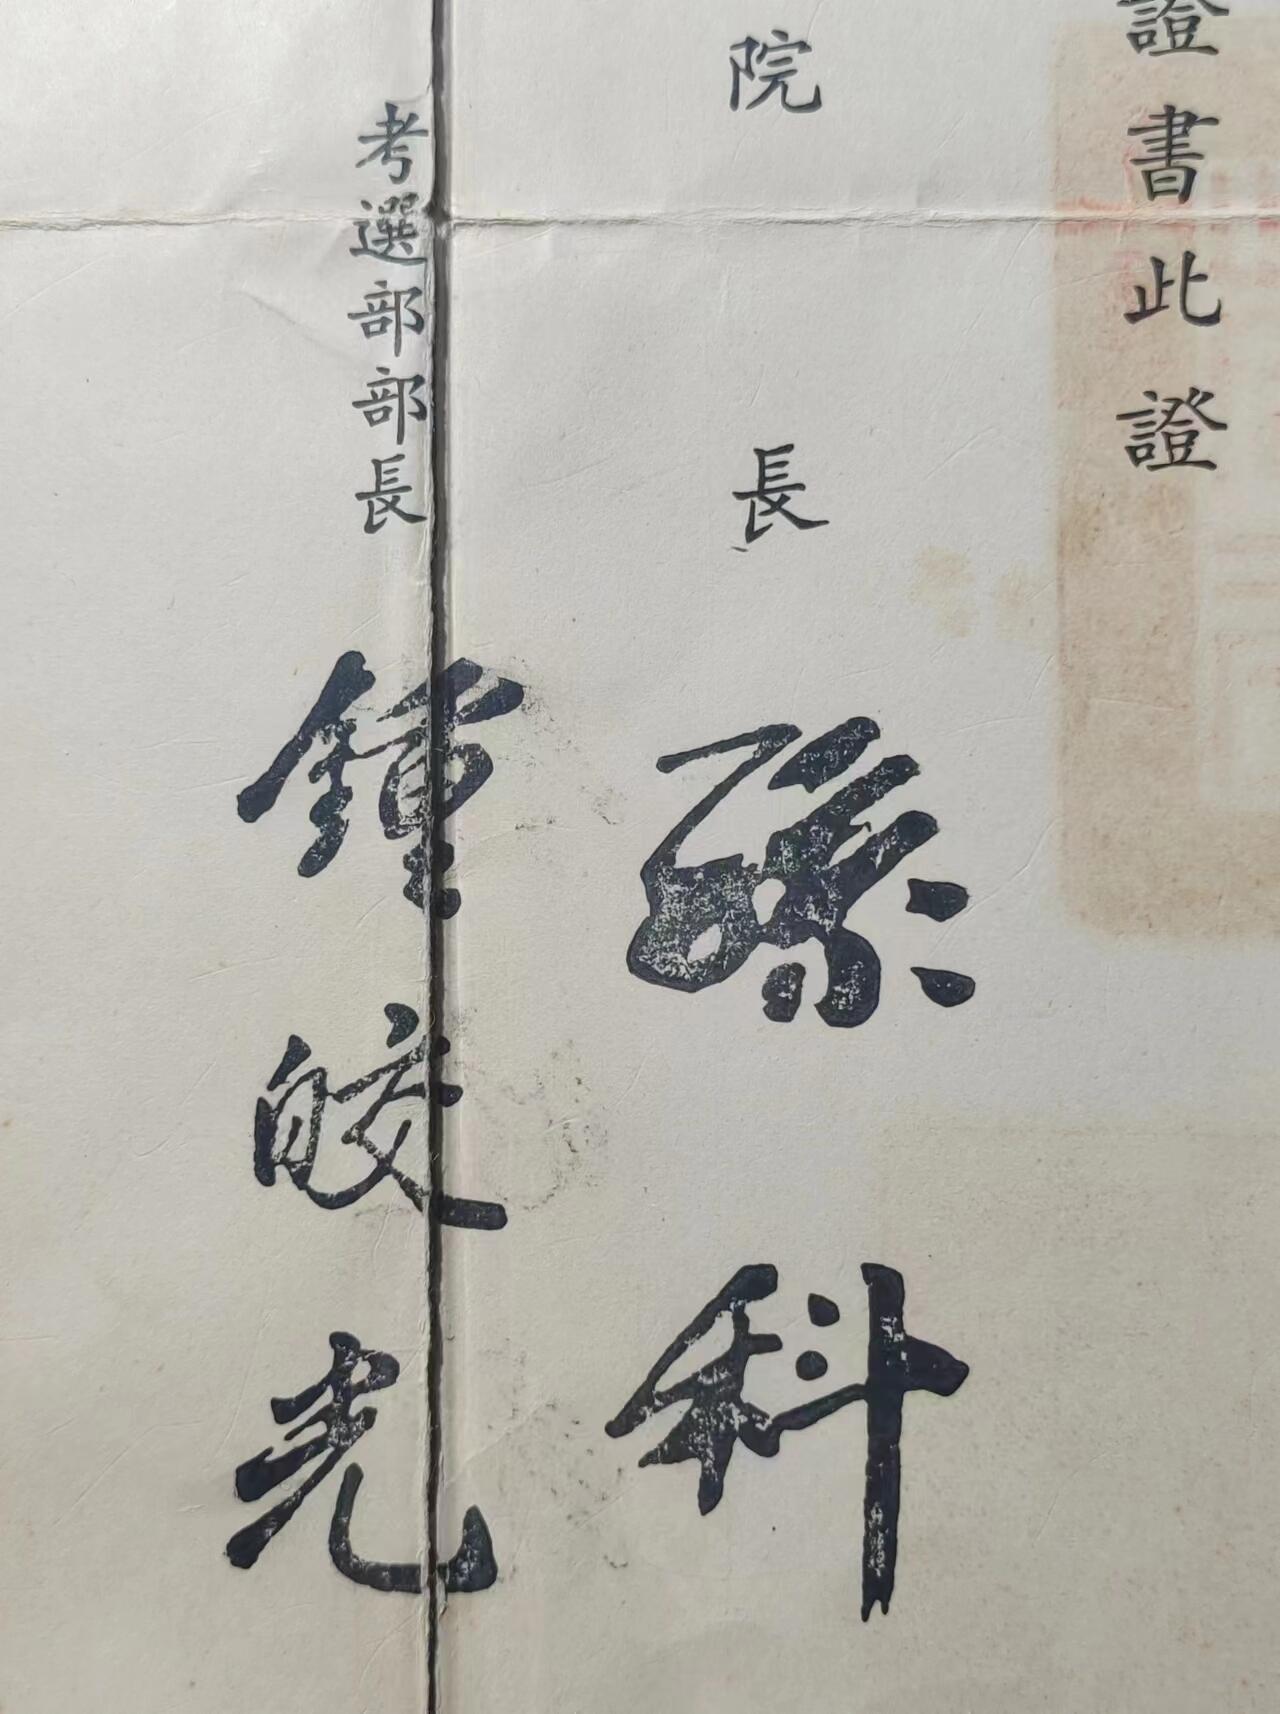 證書此證
院長 孫科
考選部部長 鍾皎光